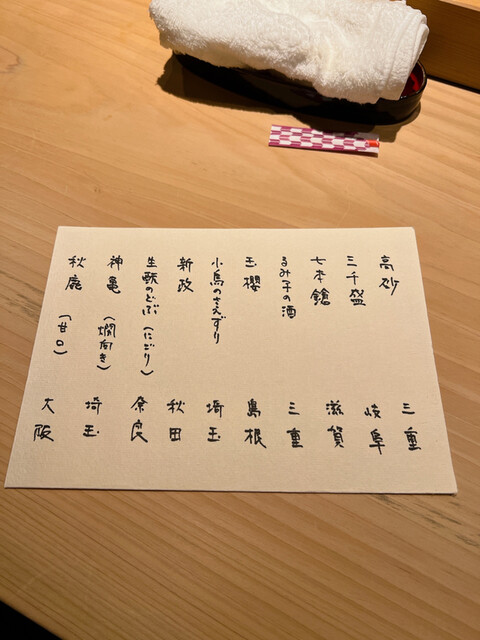 高砂 三重
三千盛 岐阜
七本鎗 滋賀
るみ子の酒 三重
玉櫻 島根
小鳥のさえずり 埼玉
新政 秋田
生酛のどぶ(にごり) 奈良
神亀(燗向き) 埼玉
秋鹿(甘口) 大阪